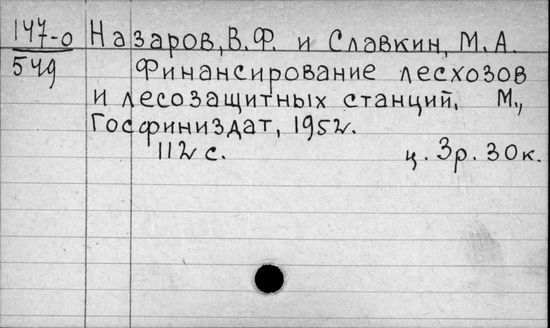 147-о Назаров, В.Ф. и Славкин, М.А.
549 Финансирование лесхозов
и лесозащитных станций. М.,
Госфиниздат, 1952.
112 с. ц. 3р. 30к.